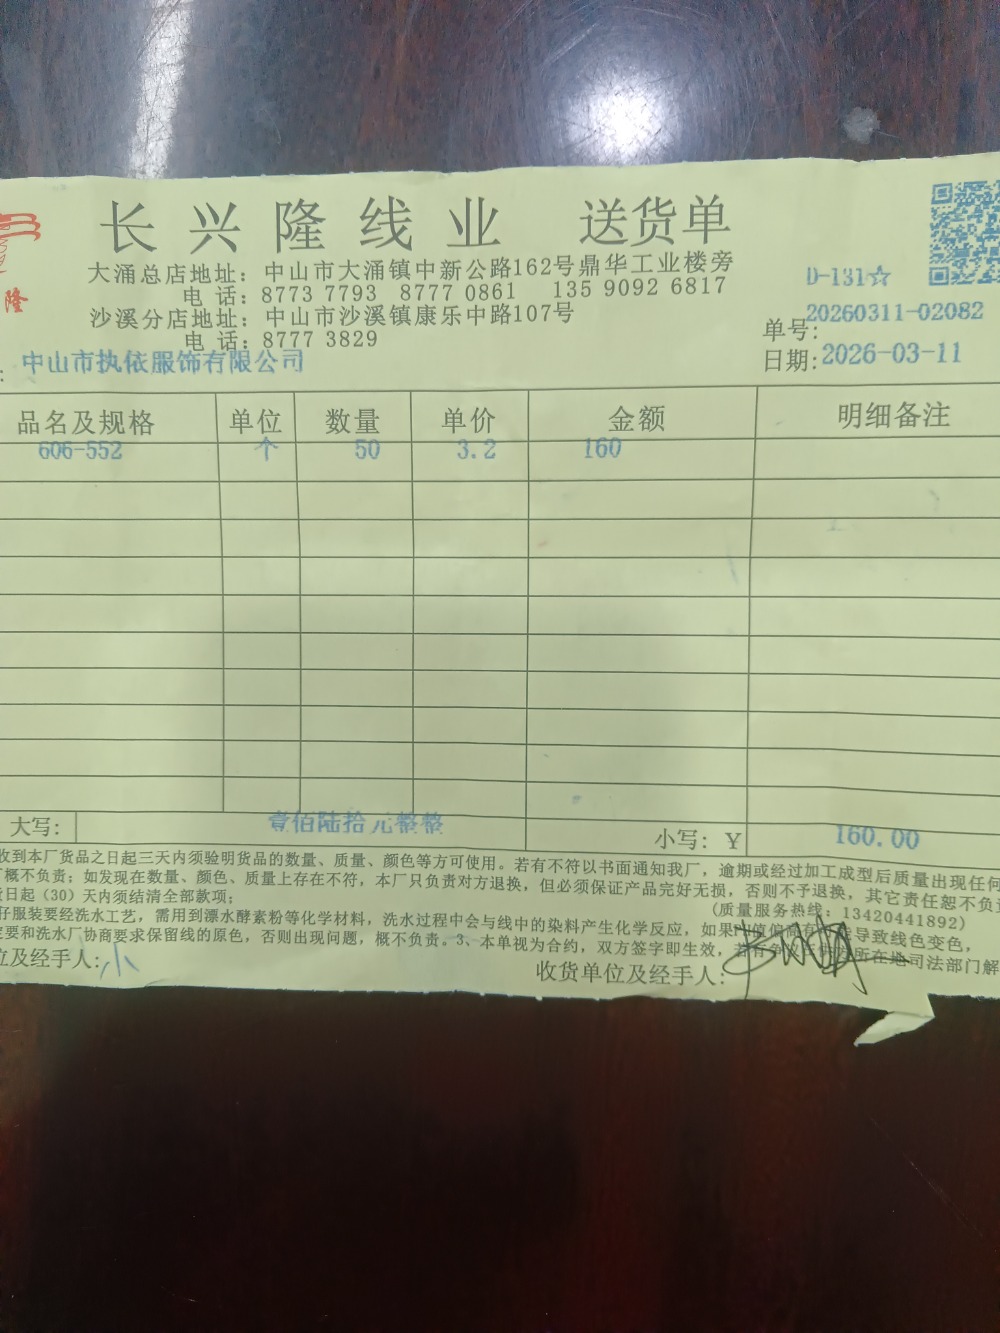 长兴隆线业 送货单
隆
大涌总店地址：中山市大涌镇中新公路162号鼎华工业楼旁
电 话：8773 7793 8777 0861 135 9092 6817
D-131☆
沙溪分店地址：中山市沙溪镇康乐中路107号
单号:20260311-02082
电 话：8777 3829
日期:2026-03-11
：中山市执依服饰有限公司
品名及规格 单位 数量 单价 金额 明细备注
606-552 个 50 3.2 160
大写： 壹佰陆拾元整整 小写：¥ 160.00
收到本厂货品之日起三天内须验明货品的数量、质量、颜色等方可使用。若有不符以书面通知我厂，逾期或经过加工成型后质量出现任何
概不负责；如发现在数量、颜色、质量上存在不符，本厂只负责对方退换，但必须保证产品完好无损，否则不予退换，其它责任恕不负
日起（30）天内须结清全部款项；
(质量服务热线：13420441892)
仔服装要经洗水工艺，需用到漂水酵素粉等化学材料，洗水过程中会与线中的染料产生化学反应，如果 值偏高 导致线色变色，
要和洗水厂协商要求保留线的原色，否则出现问题，概不负责。3、本单视为合约，双方签字即生效， 所在地司法部门解
位及经手人：小
收货单位及经手人：